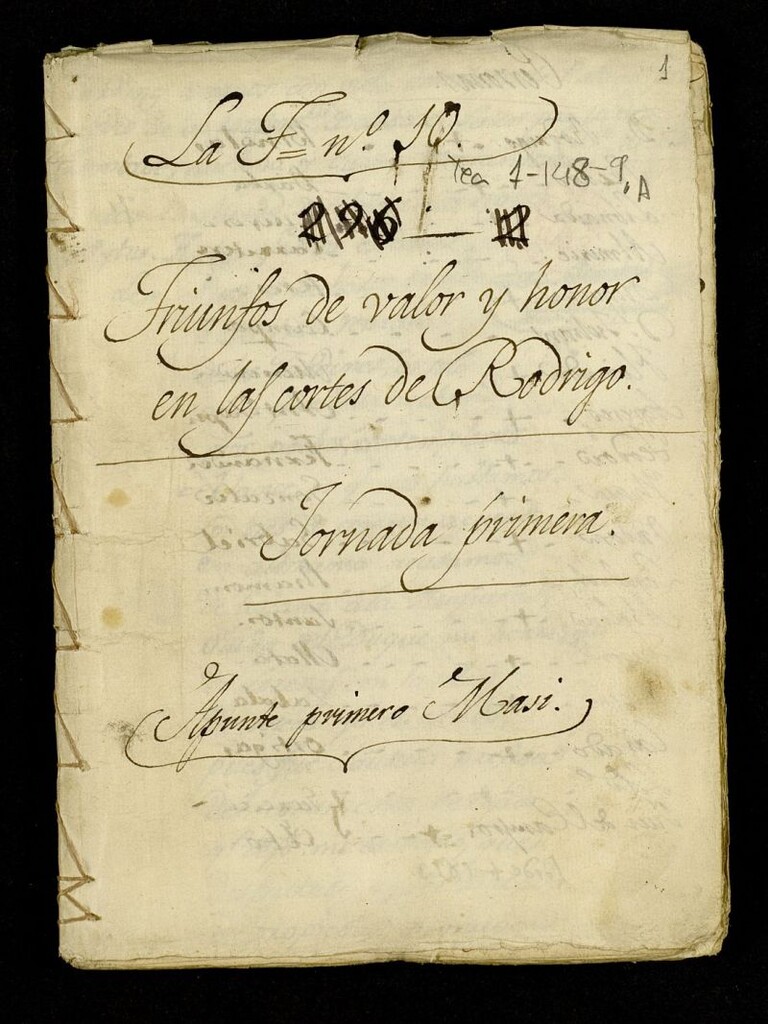 1
La F= nº 10.
Tea 1-148-9, A
Triunfos de valor y honor
en las cortes de Rodrigo.
Jornada primera.
Apunte primero Masi.